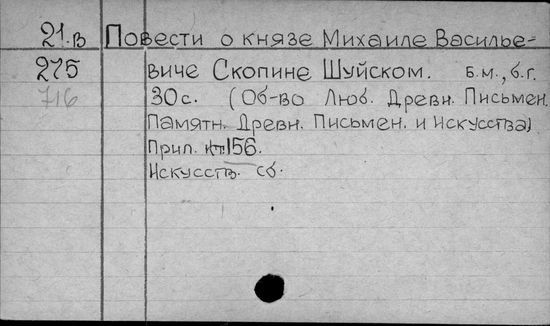 21.в Повести о князе Михаиле Василье-
275 виче Скопине Шуйском. Б.м., б.г.
716 30с. (Об-во Люб. Древн. Письмен.
Памятн. Древн. Письмен. и Искусства)
Прил. к 156.
Искусств. сб.